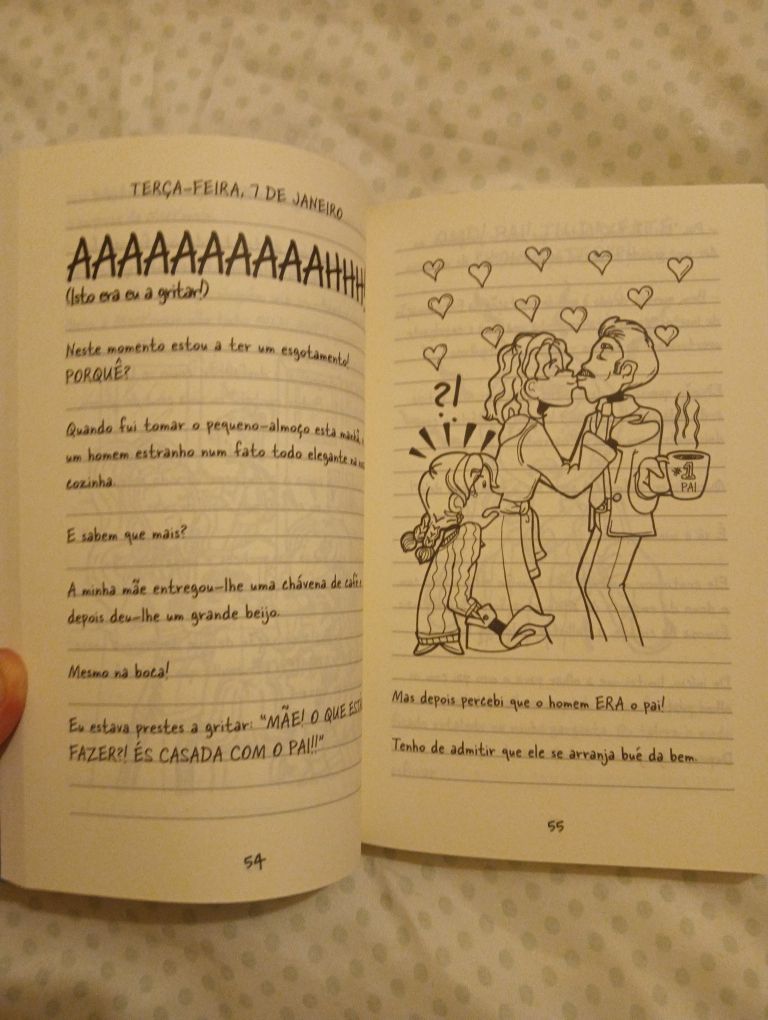 TERÇA-FEIRA, 7 DE JANEIRO
AAAAAAAAAAHHH
(Isto era eu a gritar!)
Neste momento estou a ter um esgotamento!
PORQUÊ?
Quando fui tomar o pequeno-almoço esta manhã,
um homem estranho num fato todo elegante na
cozinha.
E sabem que mais?
A minha mãe entregou-lhe uma chávena de café
depois deu-lhe um grande beijo.
Mesmo na boca!
Eu estava prestes a gritar: "MÃE! O QUE ESTÁ
FAZER?! ÉS CASADA COM O PAI!!"
54
?!
#1
PAI
Mas depois percebi que o homem ERA o pai!
Tenho de admitir que ele se arranja bué da bem.
55